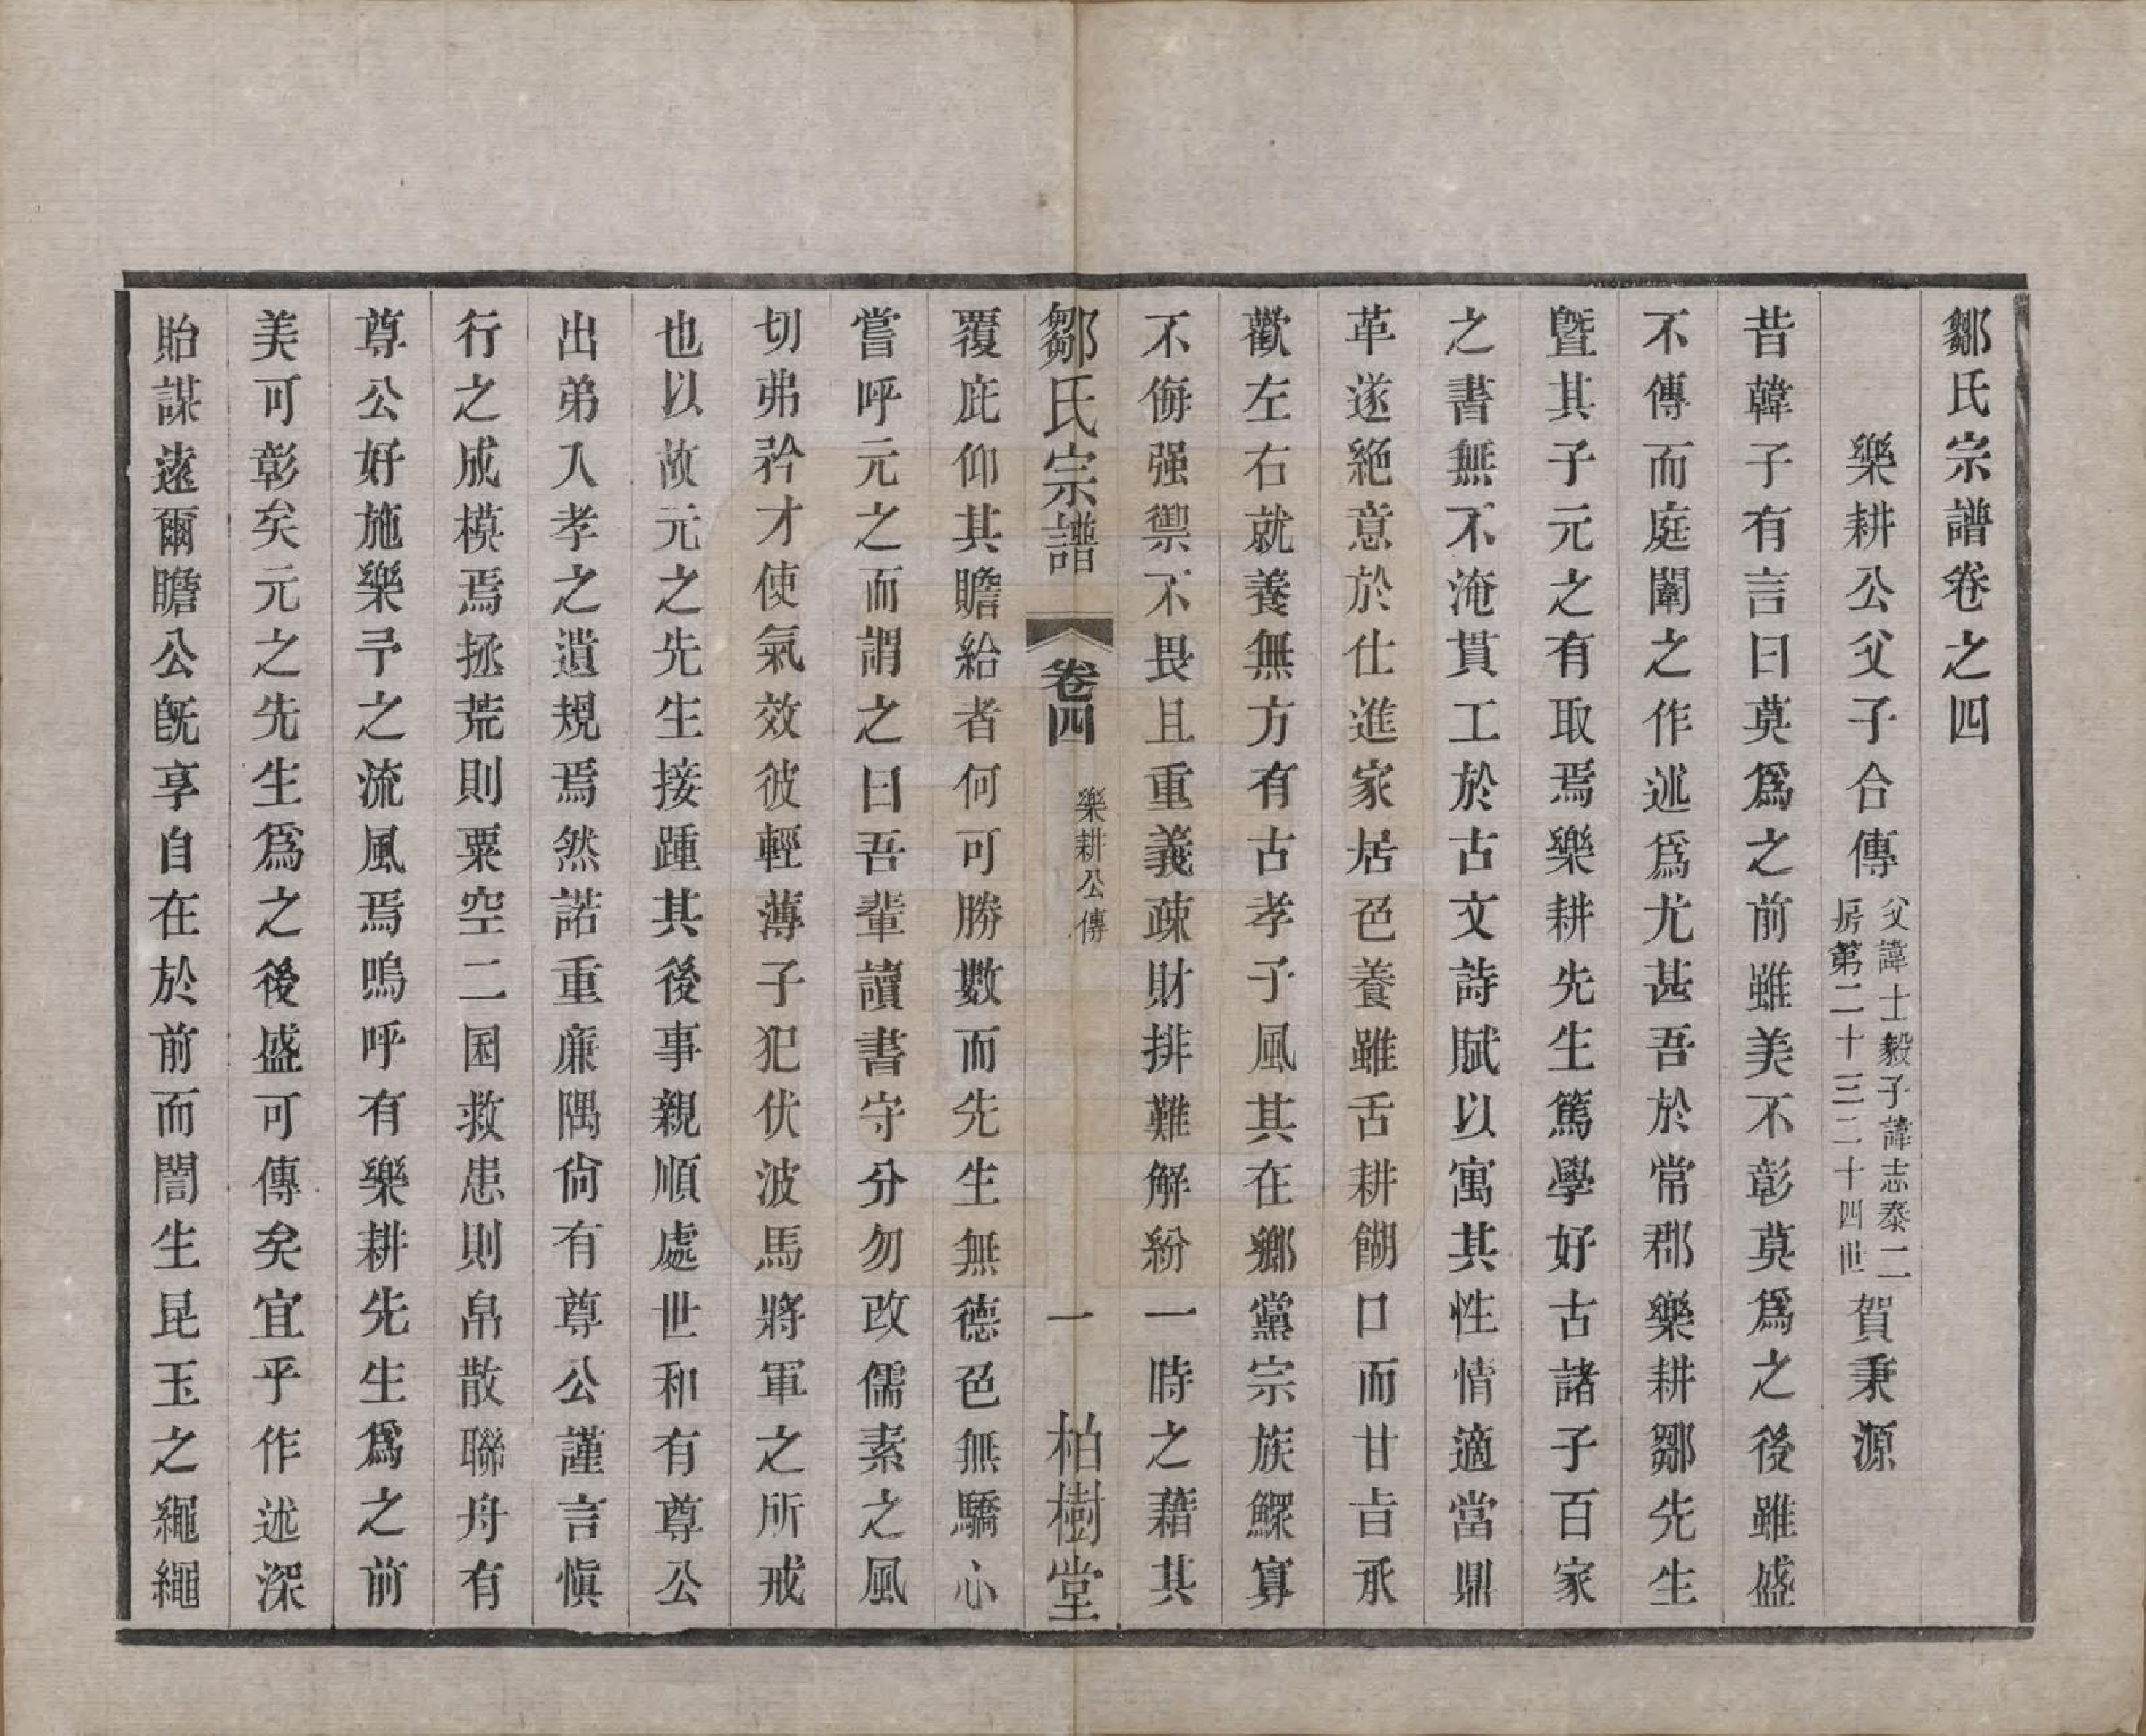 鄒氏宗譜卷之四
樂耕公父子合傳 父諱士毅子諱志泰二房第二十三二十四世 賀秉源
昔韓子有言曰莫爲之前雖美不彰莫爲之後雖盛
不傳而庭闈之作述爲尤甚吾於常郡樂耕鄒先生
曁其子元之有取焉樂耕先生篤學好古諸子百家
之書無不淹貫工於古文詩賦以寓其性情適當鼎
革遂絕意於仕進家居色養雖舌耕餬口而甘旨承
歡左右就養無方有古孝子風其在鄉黨宗族鰥寡
不侮强禦不畏且重義疎財排難解紛一時之藉其
鄒氏宗譜 卷四 樂耕公傳 一 柏樹堂
覆庇仰其贍給者何可勝數而先生無德色無驕心
嘗呼元之而謂之曰吾輩讀書守分勿改儒素之風
切弗矜才使氣效彼輕薄子犯伏波馬將軍之所戒
也以故元之先生接踵其後事親順處世和有尊公
出弟入孝之遺規焉然諾重廉隅尙有尊公謹言愼
行之成模焉拯荒則粟空二囷救患則帛散聯舟有
尊公好施樂予之流風焉嗚呼有樂耕先生爲之前
美可彰矣元之先生爲之後盛可傳矣宜乎作述深
貽謀遠爾瞻公旣享自在於前而誾生昆玉之繩繩